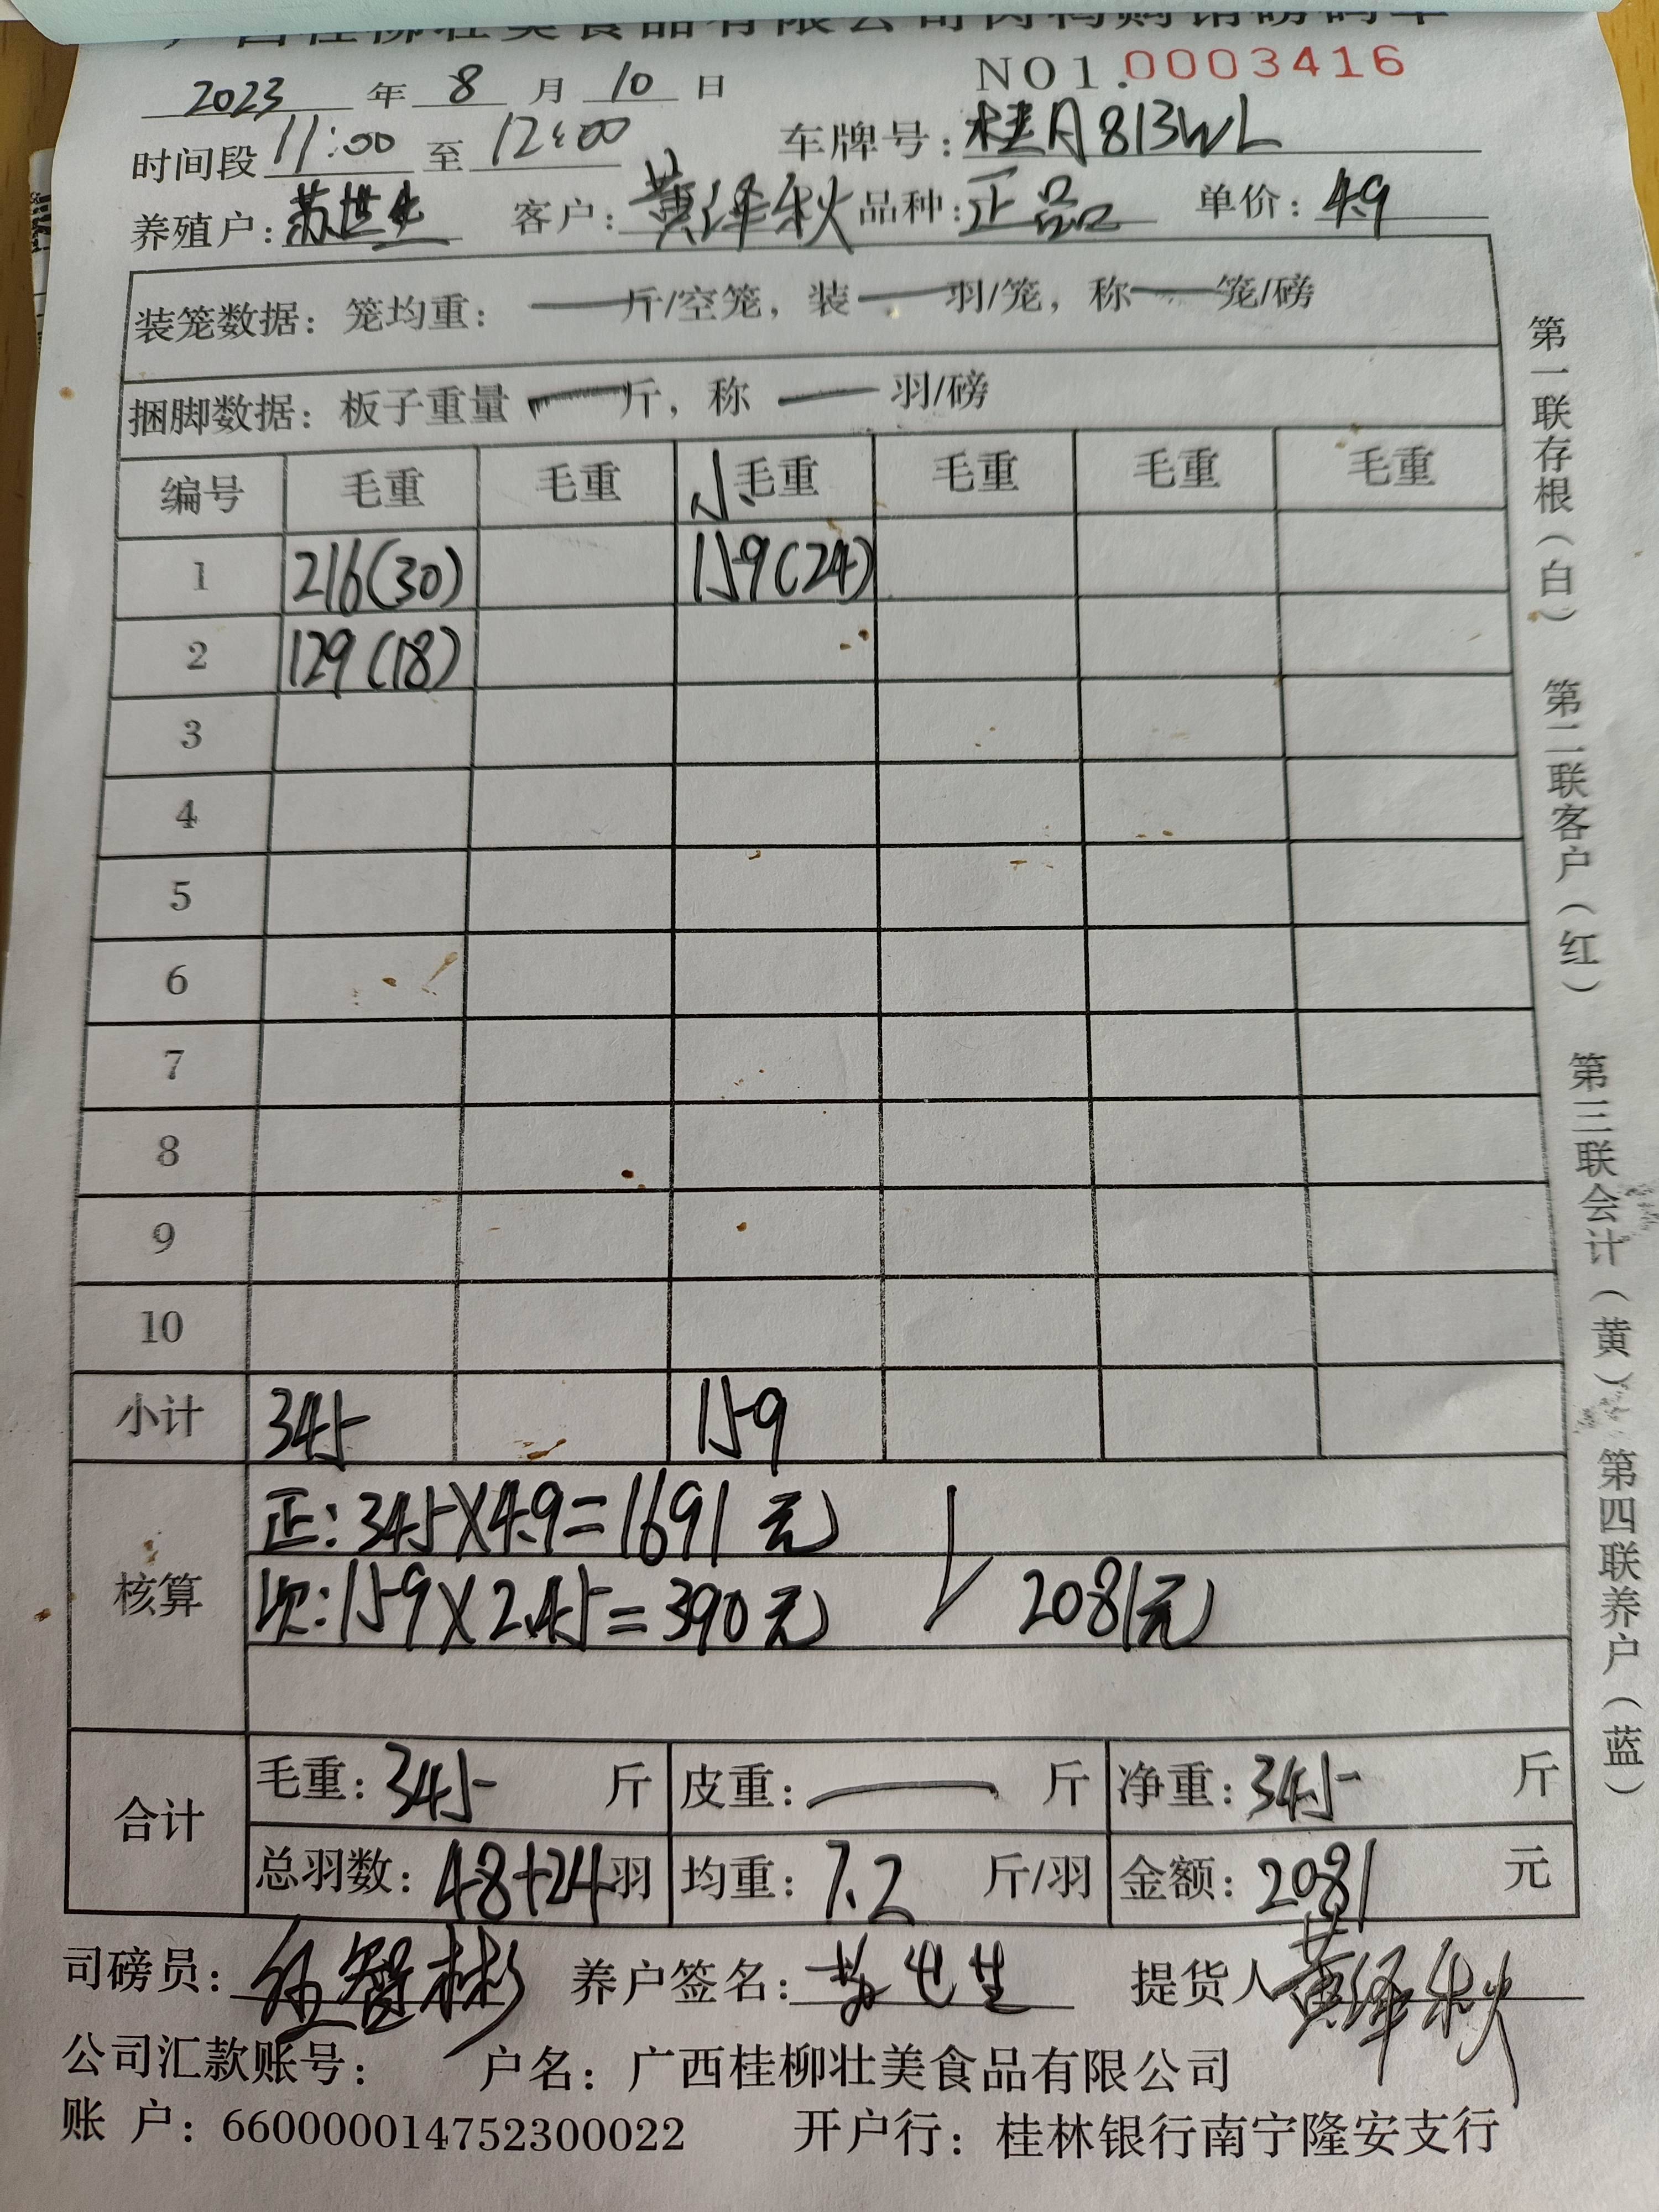 广西桂柳壮美食品有限公司肉鸭购销磅码单
2023 年 8 月 10 日 NO1.0003416
时间段 11:00 至 12:00 车牌号: 桂A813WL
养殖户: 苏世生 客户: 黄泽秋 品种: 正品 单价: 4.9
装笼数据: 笼均重: —斤/空笼, 装—羽/笼, 称—笼/磅
捆脚数据: 板子重量 —斤, 称 — 羽/磅
编号 毛重 毛重 小 毛重 毛重 毛重 毛重
1 216(30) 159(24)
2 129(18)
3
4
5
6
7
8
9
10
小计 345 159
核算
正: 345×4.9=1691 元
次: 159×2.45=390元 2081元
合计
毛重: 345 斤 皮重: — 斤 净重: 345 斤
总羽数: 48+24羽 均重: 7.2 斤/羽 金额: 2081 元
司磅员: 智彬 养户签名: 苏世生 提货人 黄泽秋
公司汇款账号: 户名: 广西桂柳壮美食品有限公司
账 户: 660000014752300022 开户行: 桂林银行南宁隆安支行
第一联存根(白) 第二联客户(红) 第三联会计(黄) 第四联养户(蓝)